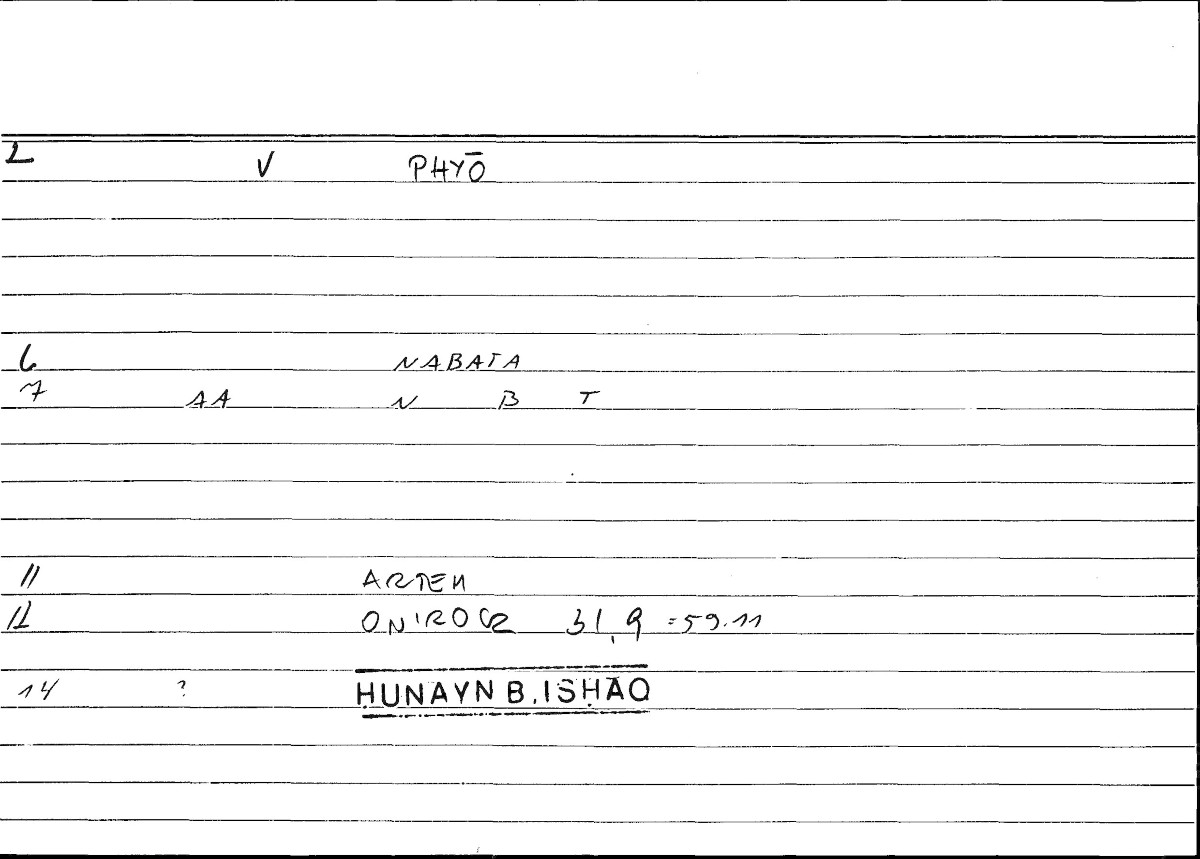 2 V PHYŌ
6 NABATA
7 AA N B T
11 ARTEM
12 ONIROCR 31,9 =59.11
14 ? ḤUNAYN B. ISḤĀQ